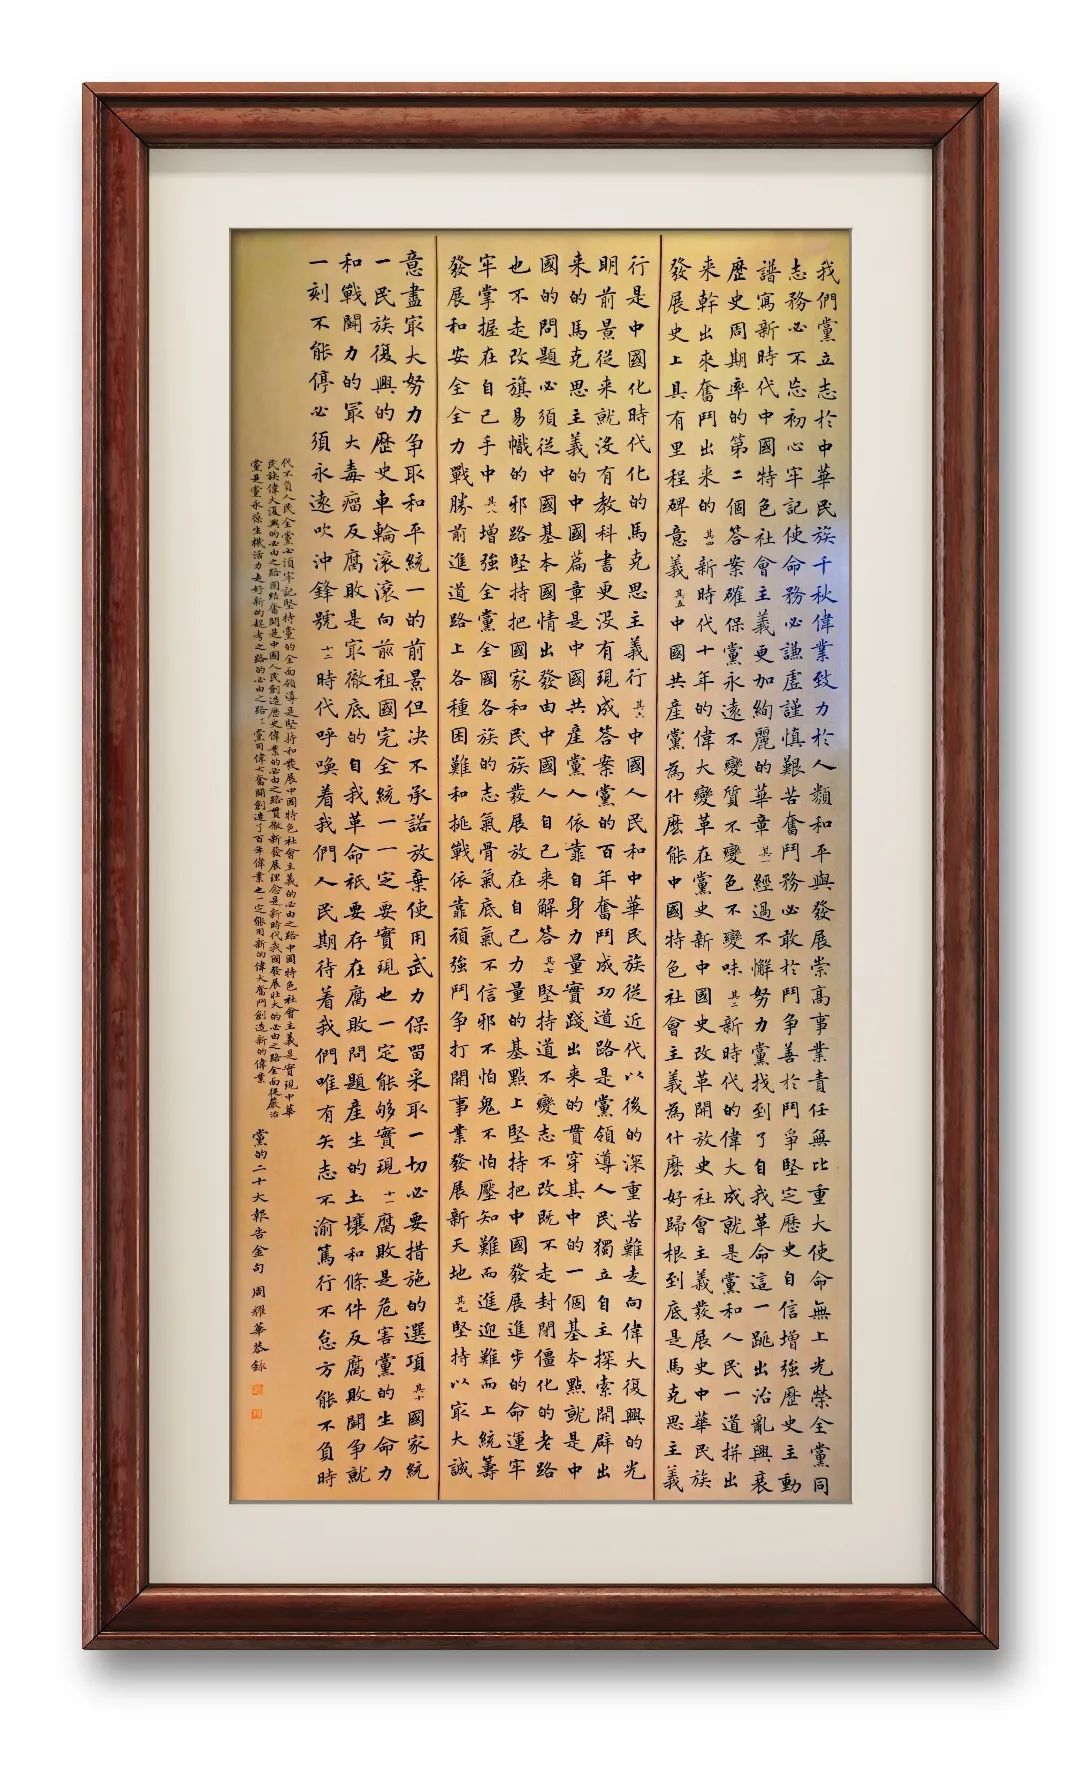 我們黨立志於中華民族千秋偉業致力於人類和平與發展崇高事業責任無比重大使命無上光榮全黨同
志務必不忘初心牢記使命務必謙虛謹慎艱苦奮鬥務必敢於鬥爭善於鬥爭堅定歷史自信增強歷史主動
譜寫新時代中國特色社會主義更加絢麗的華章其一經過不懈努力黨找到了自我革命這一跳出治亂興衰
歷史周期率的第二個答案確保黨永遠不變質不變色不變味其二新時代的偉大成就是黨和人民一道拼出
來幹出來奮鬥出來的其四新時代十年的偉大變革在黨史新中國史改革開放史社會主義發展史中華民族
發展史上具有里程碑意義其五中國共產黨為什麼能中國特色社會主義為什麼好歸根到底是馬克思主義
行是中國化時代化的馬克思主義行其六中國人民和中華民族從近代以後的深重苦難走向偉大復興的光
明前景從來就沒有教科書更沒有現成答案黨的百年奮鬥成功道路是黨領導人民獨立自主探索開辟出
來的馬克思主義的中國篇章是中國共產黨人依靠自身力量實踐出來的貫穿其中的一個基本點就是中
國的問題必須從中國基本國情出發由中國人自己來解答其七堅持道不變志不改既不走封閉僵化的老路
也不走改旗易幟的邪路堅持把國家和民族發展放在自己力量的基點上堅持把中國發展進步的命運牢
牢掌握在自己手中其八增強全黨全國各族的志氣骨氣底氣不信邪不怕鬼不怕壓知難而進迎難而上統籌
發展和安全全力戰勝前進道路上各種困難和挑戰依靠頑強鬥爭打開事業發展新天地其九堅持以最大誠
意盡最大努力爭取和平統一的前景但決不承諾放棄使用武力保留采取一切必要措施的選項其十國家統
一民族復興的歷史車輪滾滾向前祖國完全統一一定要實現也一定能够實現十一腐敗是危害黨的生命力
和戰鬪力的最大毒瘤反腐敗是最徹底的自我革命衹要存在腐敗問題產生的土壤和條件反腐敗鬪爭就
一刻不能停必須永遠吹沖鋒號十二時代呼喚着我們人民期待着我們唯有矢志不渝篤行不怠方能不負時
代不負人民全黨必須牢記堅持黨的全面領導是堅持和發展中國特色社會主義的必由之路中國特色社會主義是實現中華
民族偉大復興的必由之路團結奮鬪是中國人民創造歷史偉業的必由之路貫徹新發展理念是新時代我國發展壯大的必由之路全面從嚴治
黨是黨永葆生機活力走好新的趕考之路的必由之路黨用偉大奮鬪創造了百年偉業也一定能用新的偉大奮鬥創造新的偉業
黨的二十大報告金句 周耀華恭錄